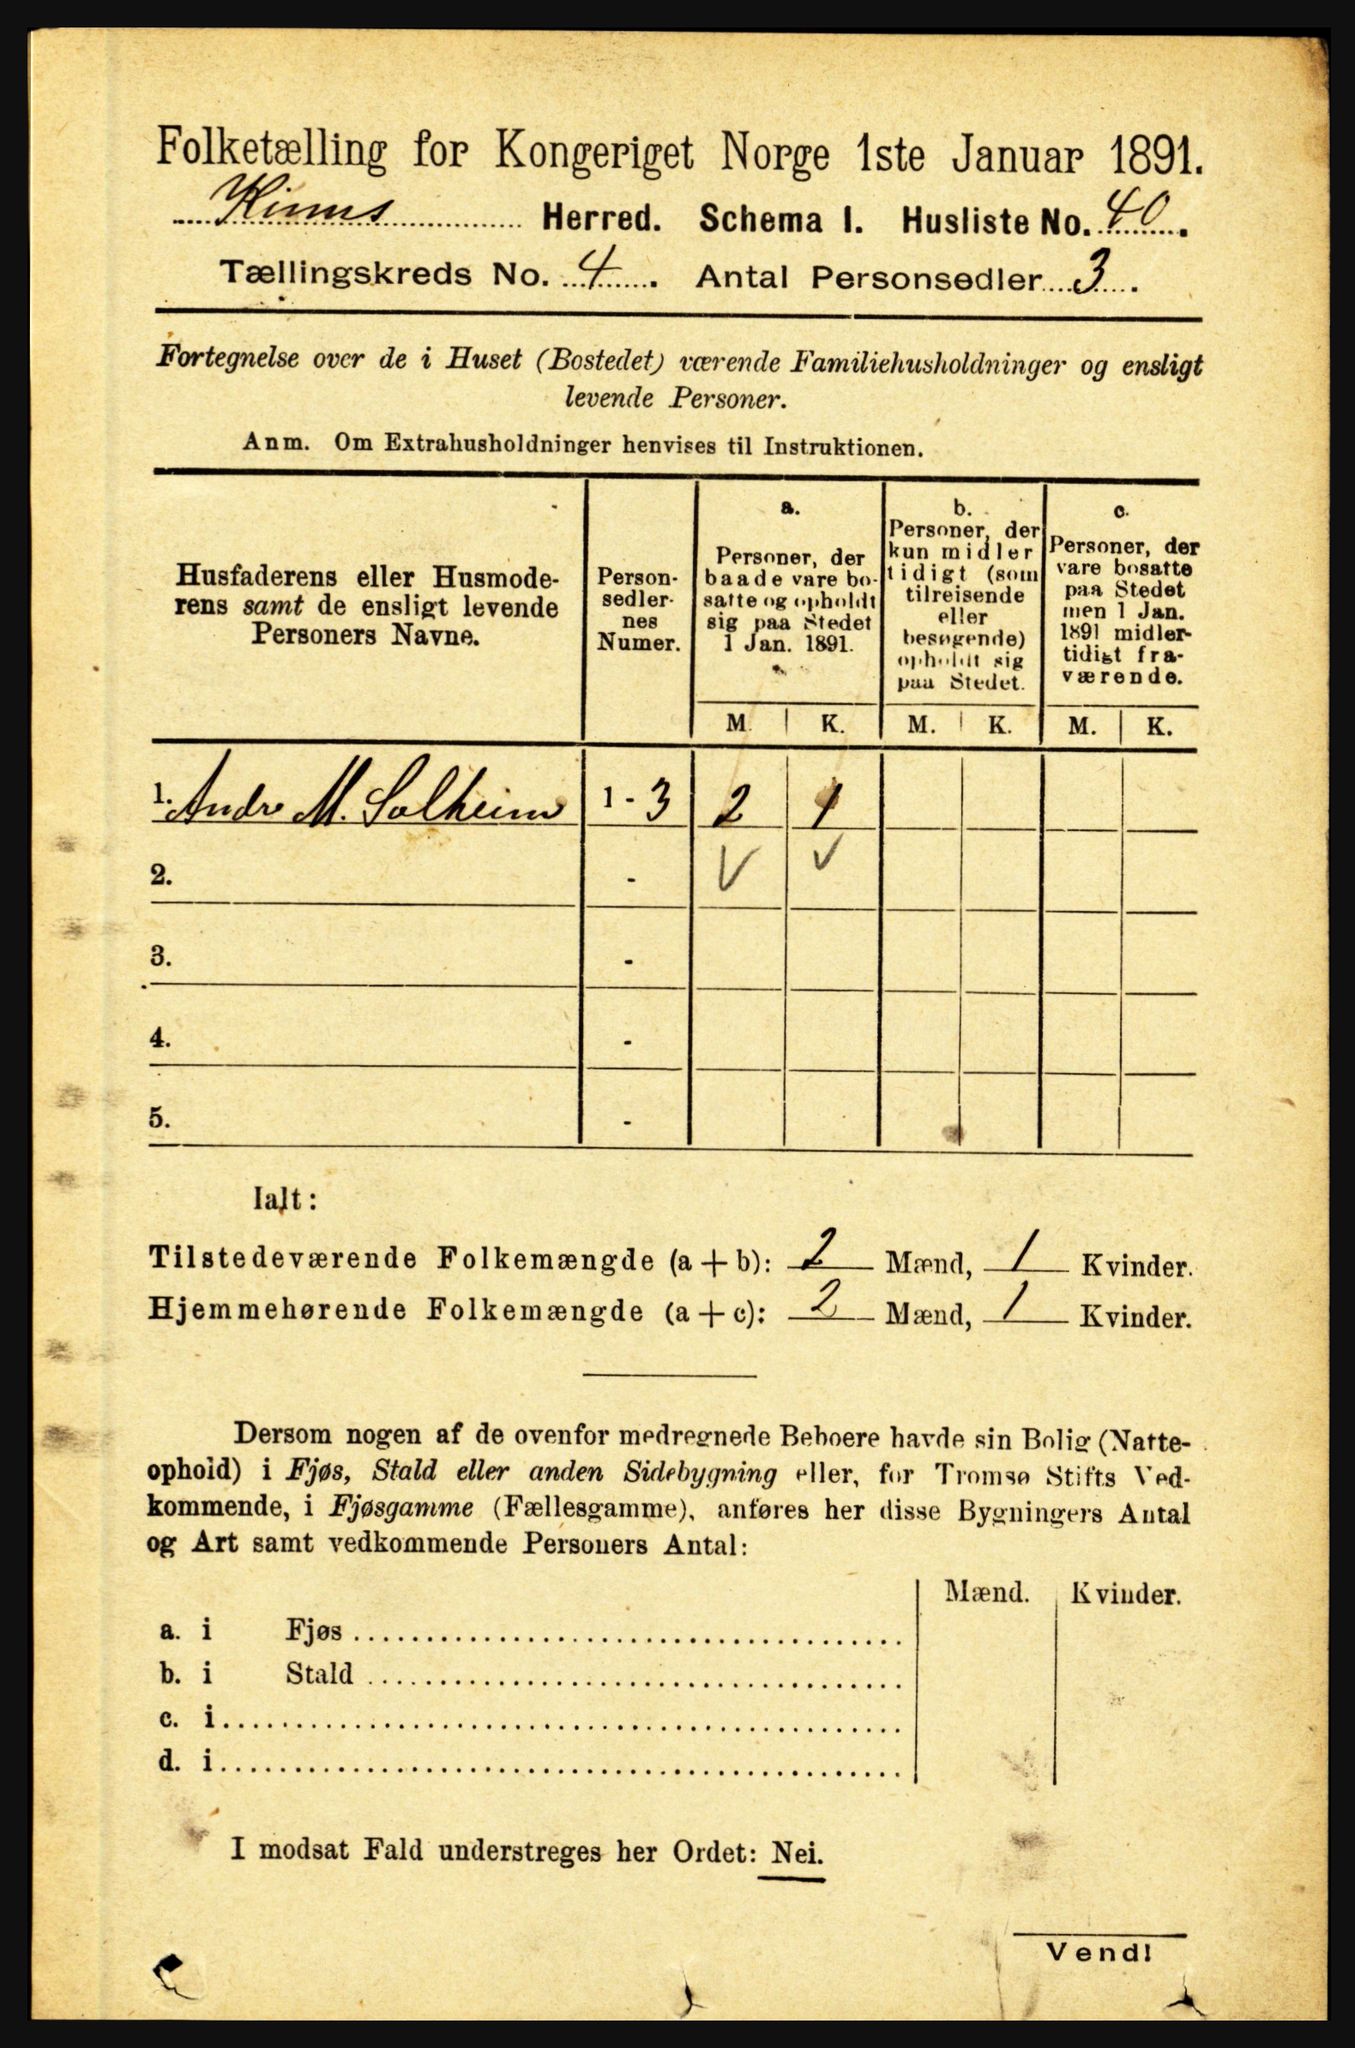 Folketælling for Kongeriget Norge 1ste Januar 1891.
Kinns Herred. Schema I. Husliste No. 40.
Tællingskreds No. 4. Antal Personsedler 3.
Fortegnelse over de i Huset (Bostedet) værende Familiehusholdninger og ensligt
levende Personer.
Anm. Om Extrahusholdninger henvises til Instruktionen.
Husfaderens eller Husmode-
rens samt de ensligt levende
Personers Navne.
Person-
sedler-
nes
Numer.
a.
Personer, der
baade vare bo-
satte og opholdt
sig paa Stedet
1 Jan. 1891.
b.
Personer, der
kun midler
tidigt (som
tilreisende
eller
besøgende)
opholdt sig
paa Stedet.
c.
Personer, der
vare bosatte
paa Stedet
men 1 Jan.
1891 midler-
tidigt fra-
værende.
M. K. M. K. M. K.
1. Andr M. Solheim 1 - 3 2 1
2. - V V
3. -
4. -
5. -
Ialt:
Tilstedeværende Folkemængde (a + b): 2 Mænd, 1 Kvinder.
Hjemmehørende Folkemængde (a + c): 2 Mænd, 1 Kvinder.
Dersom nogen af de ovenfor medregnede Beboere havde sin Bolig (Natte-
ophold) i Fjøs, Stald eller anden Sidebygning eller, for Tromsø Stifts Ved-
kommende, i Fjøsgamme (Fællesgamme), anføres her disse Bygningers Antal
og Art samt vedkommende Personers Antal:
Mænd. Kvinder.
a. i Fjøs
b. i Stald
c. i
d. i
I modsat Fald understreges her Ordet: Nei.
Vend!